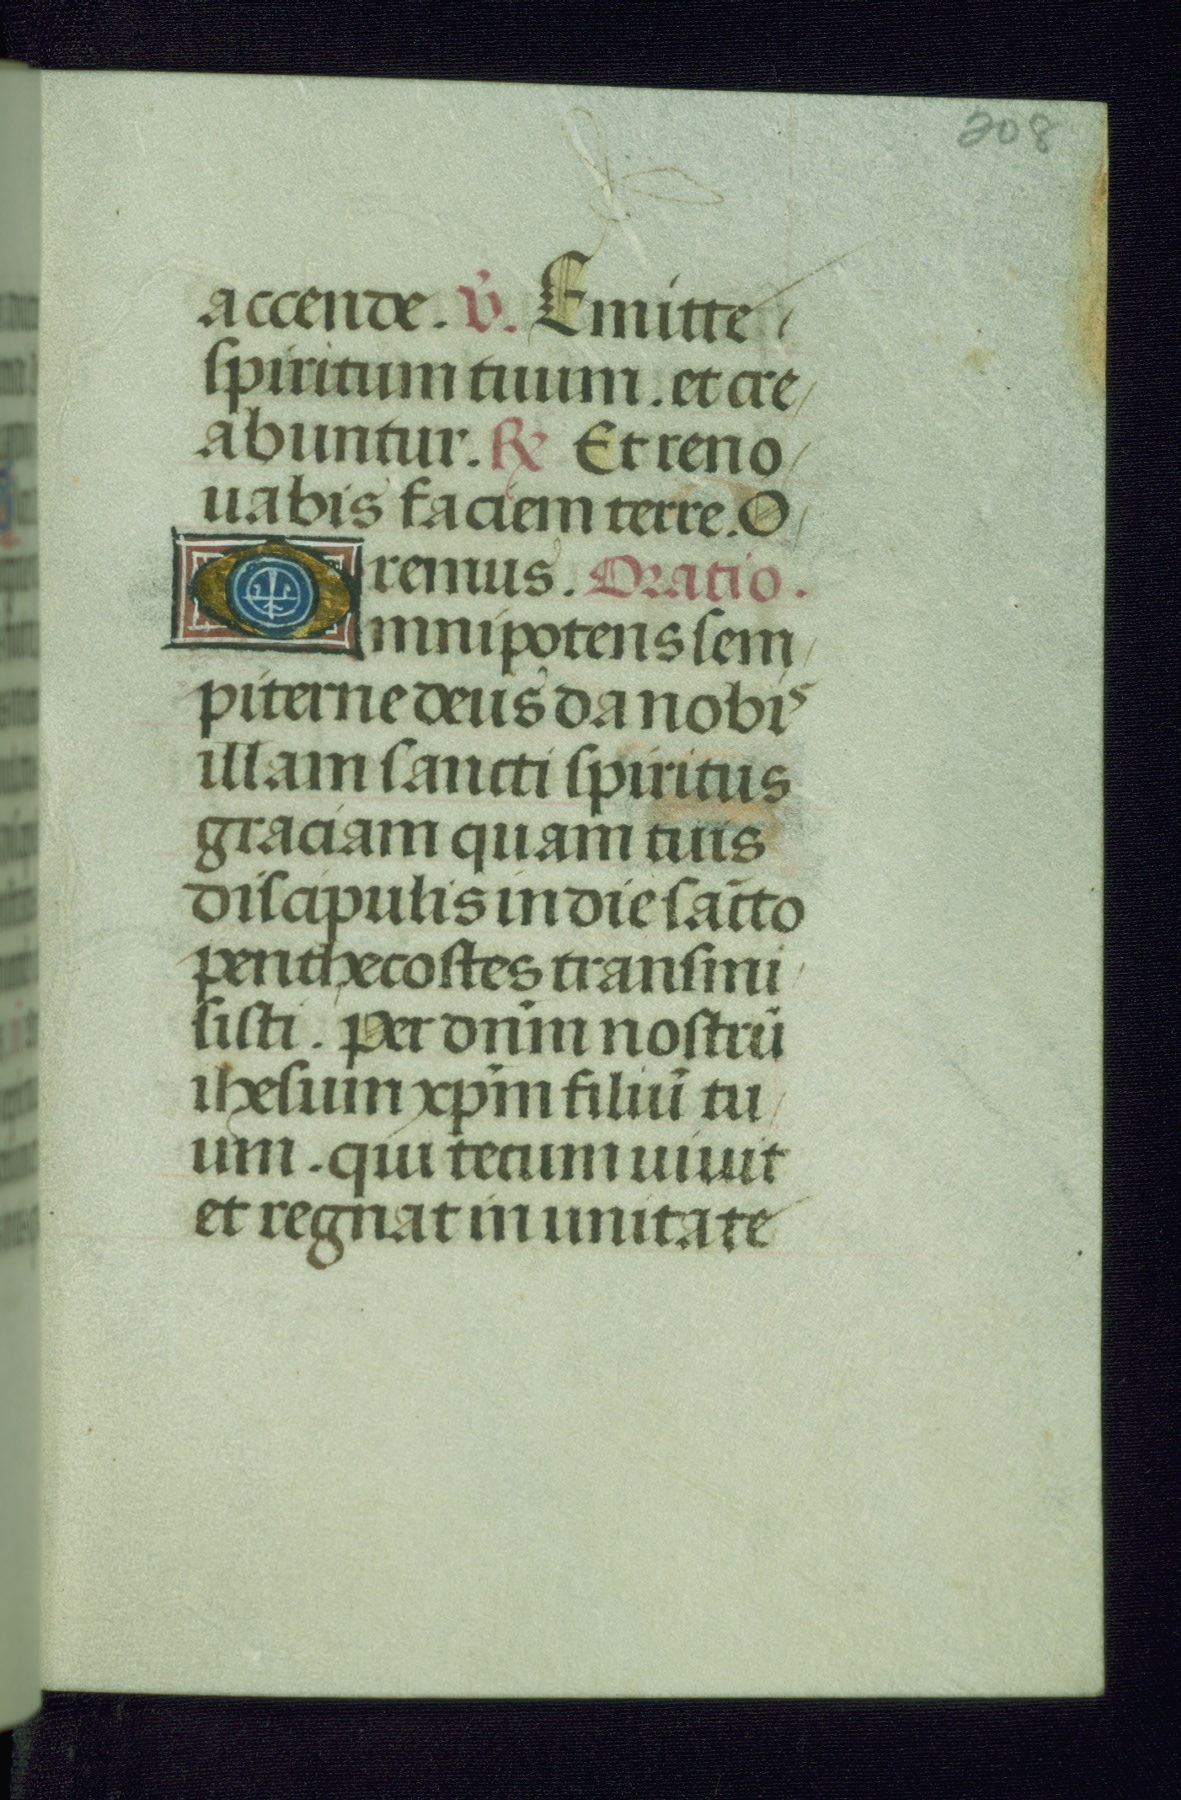 208
accende. V̄. Emitte
spiritum tuum. et cre
abuntur. ℟ Et reno
uabis faciem terre. O
remus. Oratio.
Omnipotens sem
piterne deus da nobis
illam sancti spiritus
graciam quam tuis
discipulis in die sācto
penthecostes transmi
sisti. Per dn̄m nostrū
ihesum xp̄m filiū tu
um. qui tecum uiuit
et regnat in unitate